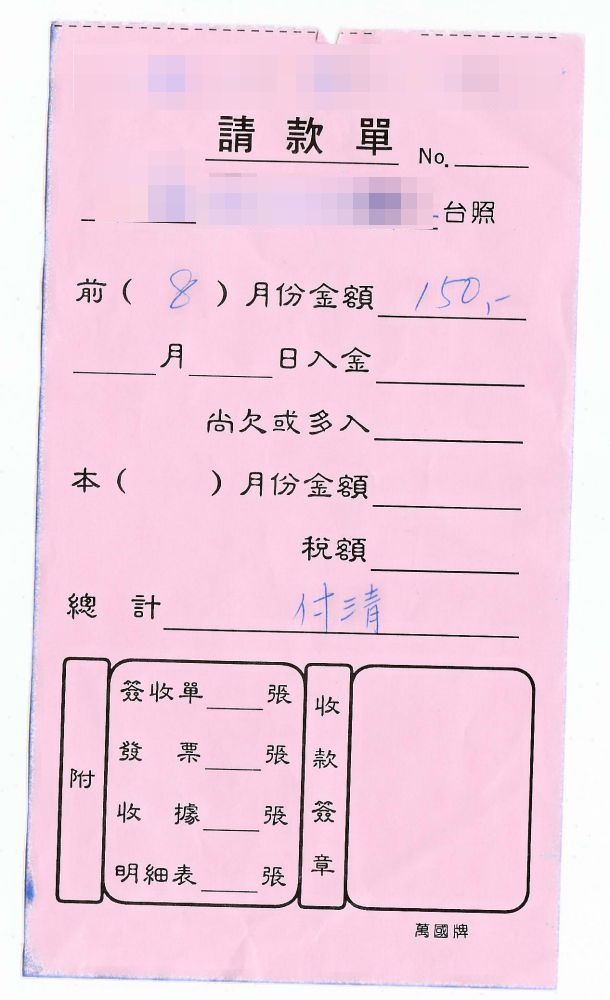 請款單 No.
台照
前（8）月份金額 150,-
月 日入金
尚欠或多入
本（ ）月份金額
稅額
總計 付清
附
簽收單 張
發票 張
收據 張
明細表 張
收款簽章
萬國牌